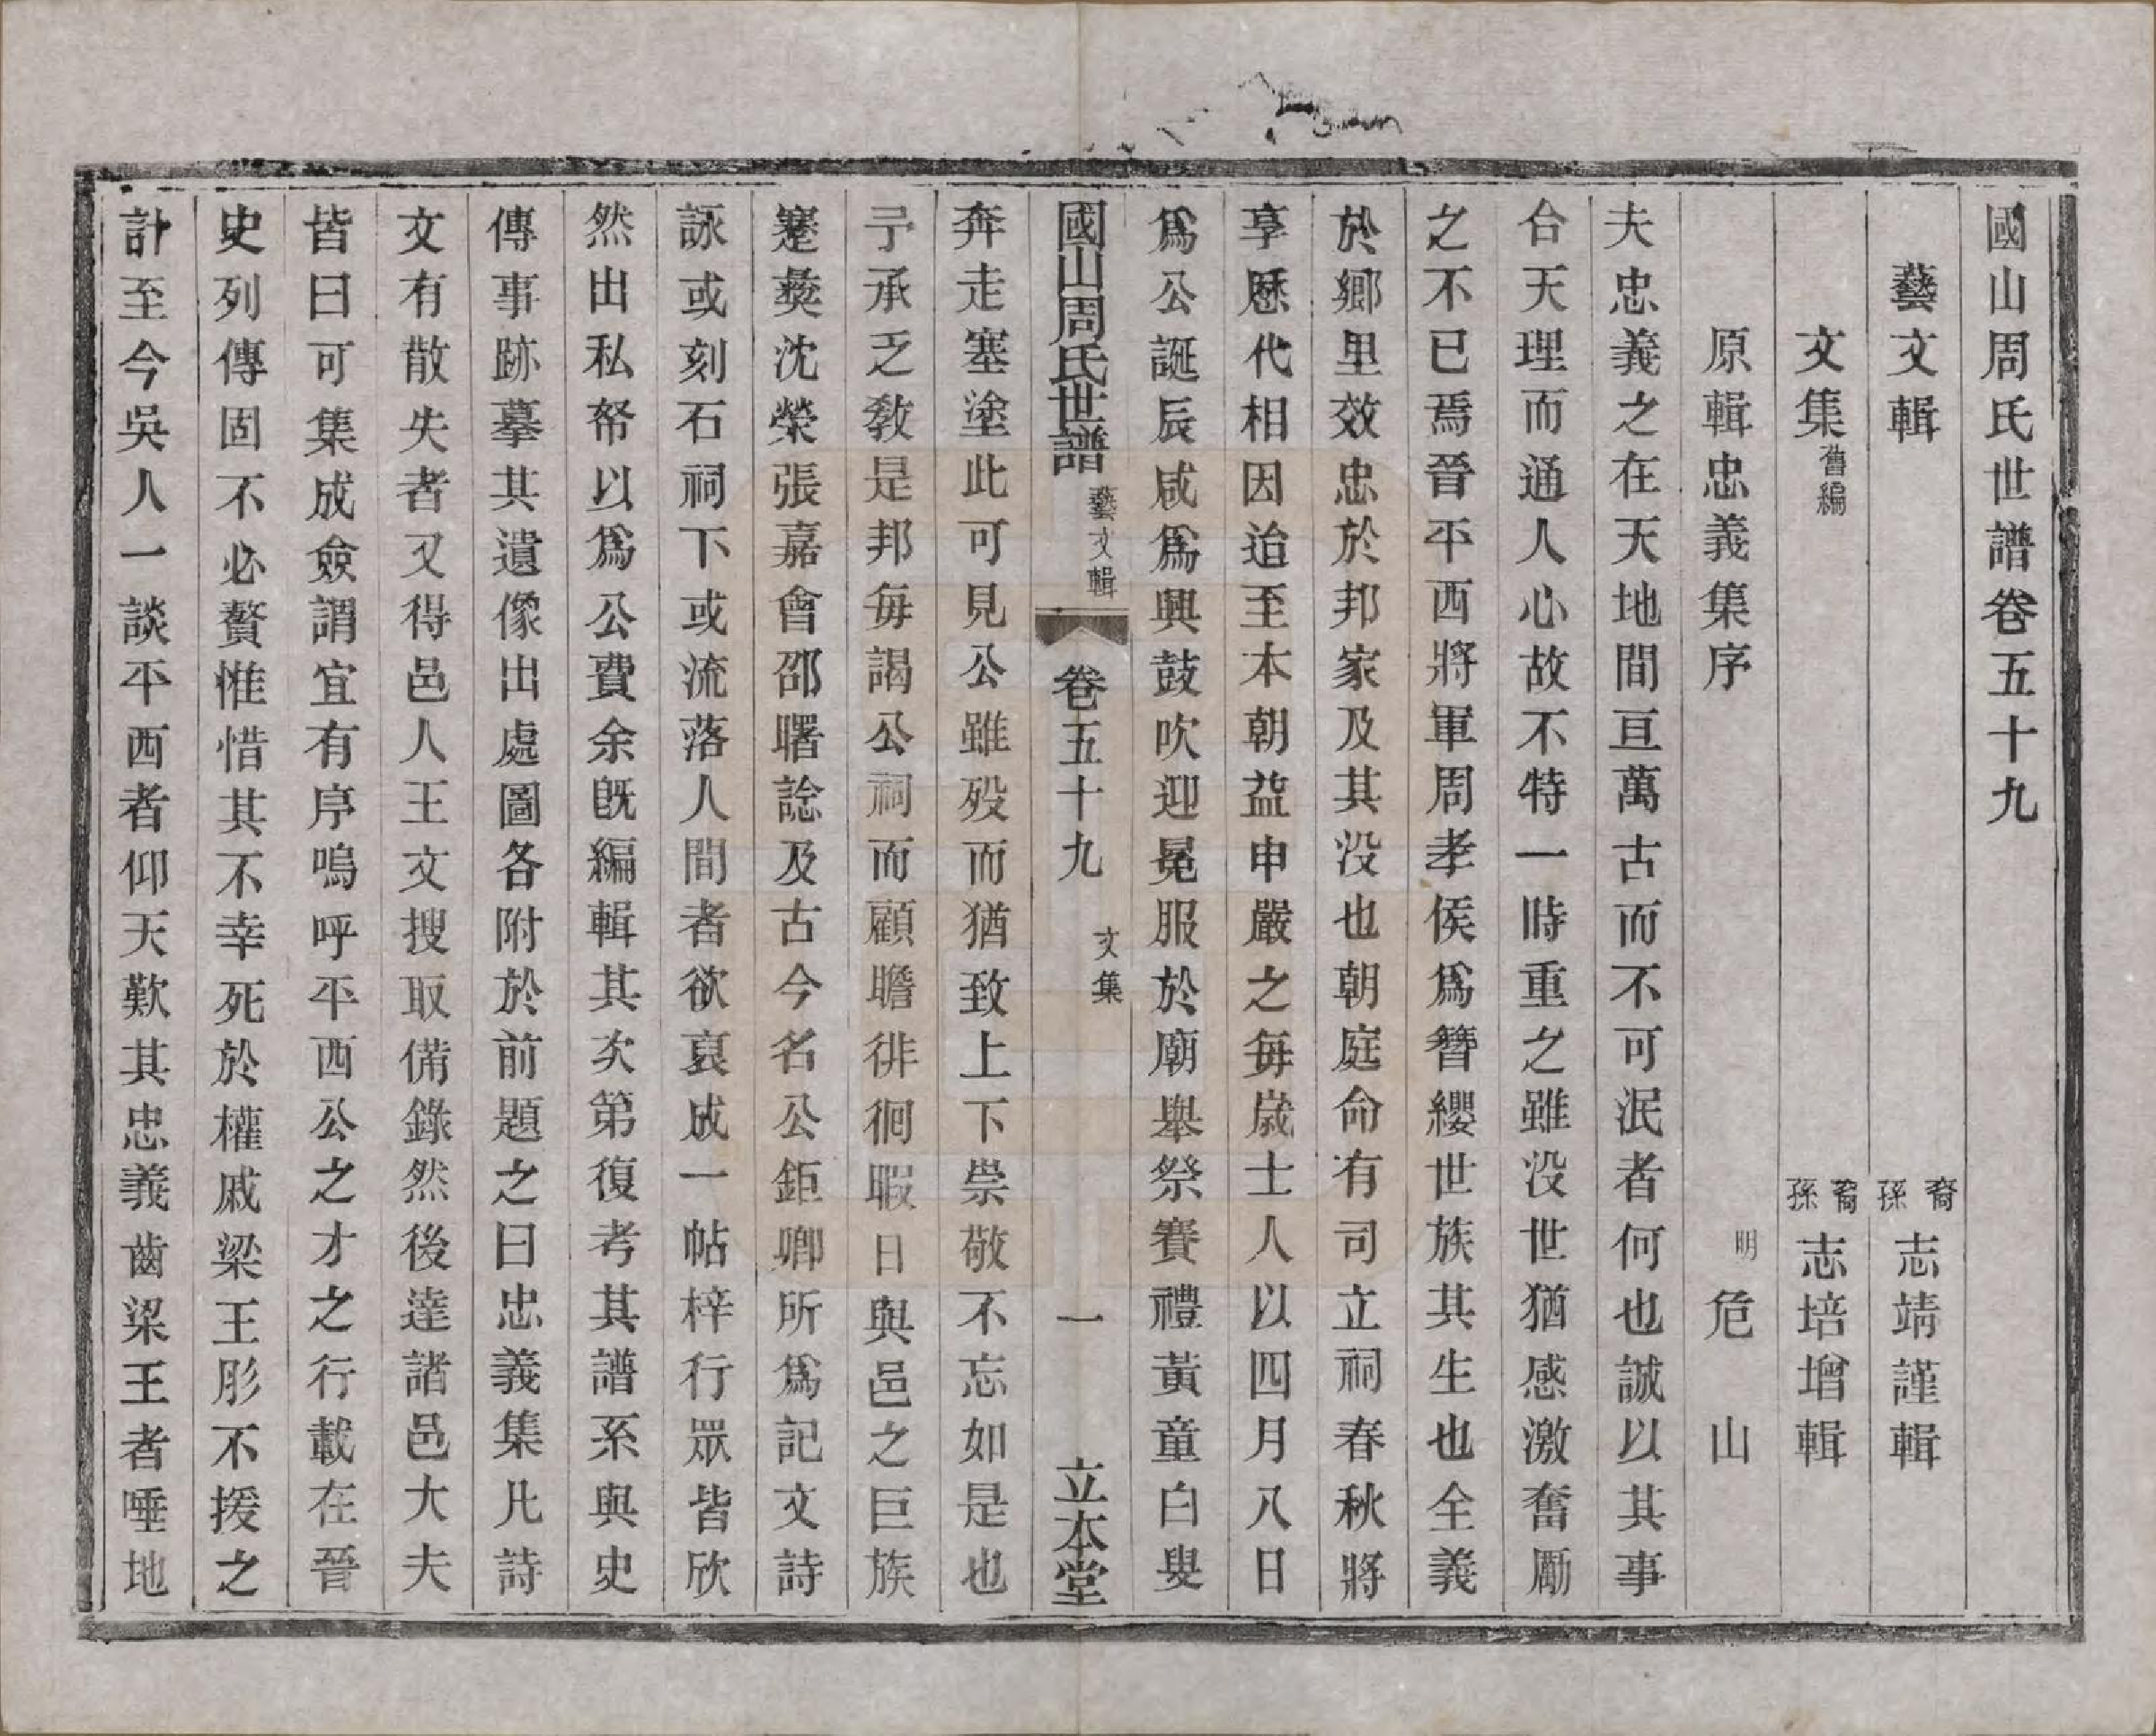 國山周氏世譜卷五十九
藝文輯 裔孫志靖謹輯
文集舊編 裔孫志培增輯
原輯忠義集序 明 危山
夫忠義之在天地間亘萬古而不可泯者何也誠以其事
合天理而通人心故不特一時重之雖没世猶感激奮勵
之不已焉晉平西將軍周孝侯爲簪纓世族其生也全義
於鄉里效忠於邦家及其没也朝庭命有司立祠春秋將
享歷代相因迨至本朝益申嚴之每歲士人以四月八日
爲公誕辰咸爲興鼓吹迎冕服於廟舉祭賽禮黃童白叟
國山周氏世譜 藝文輯 卷五十九 文集 一 立本堂
奔走塞塗此可見公雖歿而猶致上下崇敬不忘如是也
予承乏敎是邦每謁公祠而顧瞻徘徊暇日與邑之巨族
蹇彛沈榮張嘉會邵曙諗及古今名公鉅卿所爲記文詩
詠或刻石祠下或流落人間者欲裒成一帖梓行眾皆欣
然出私帑以爲公費余旣編輯其次第復考其譜系與史
傳事跡摹其遺像出處圖各附於前題之曰忠義集凡詩
文有散失者又得邑人王文搜取備錄然後達諸邑大夫
皆曰可集成僉謂宜有序嗚呼平西公之才之行載在晉
史列傳固不必贅惟惜其不幸死於權戚梁王肜不援之
計至今吳人一談平西者仰天歎其忠義齒梁王者唾地